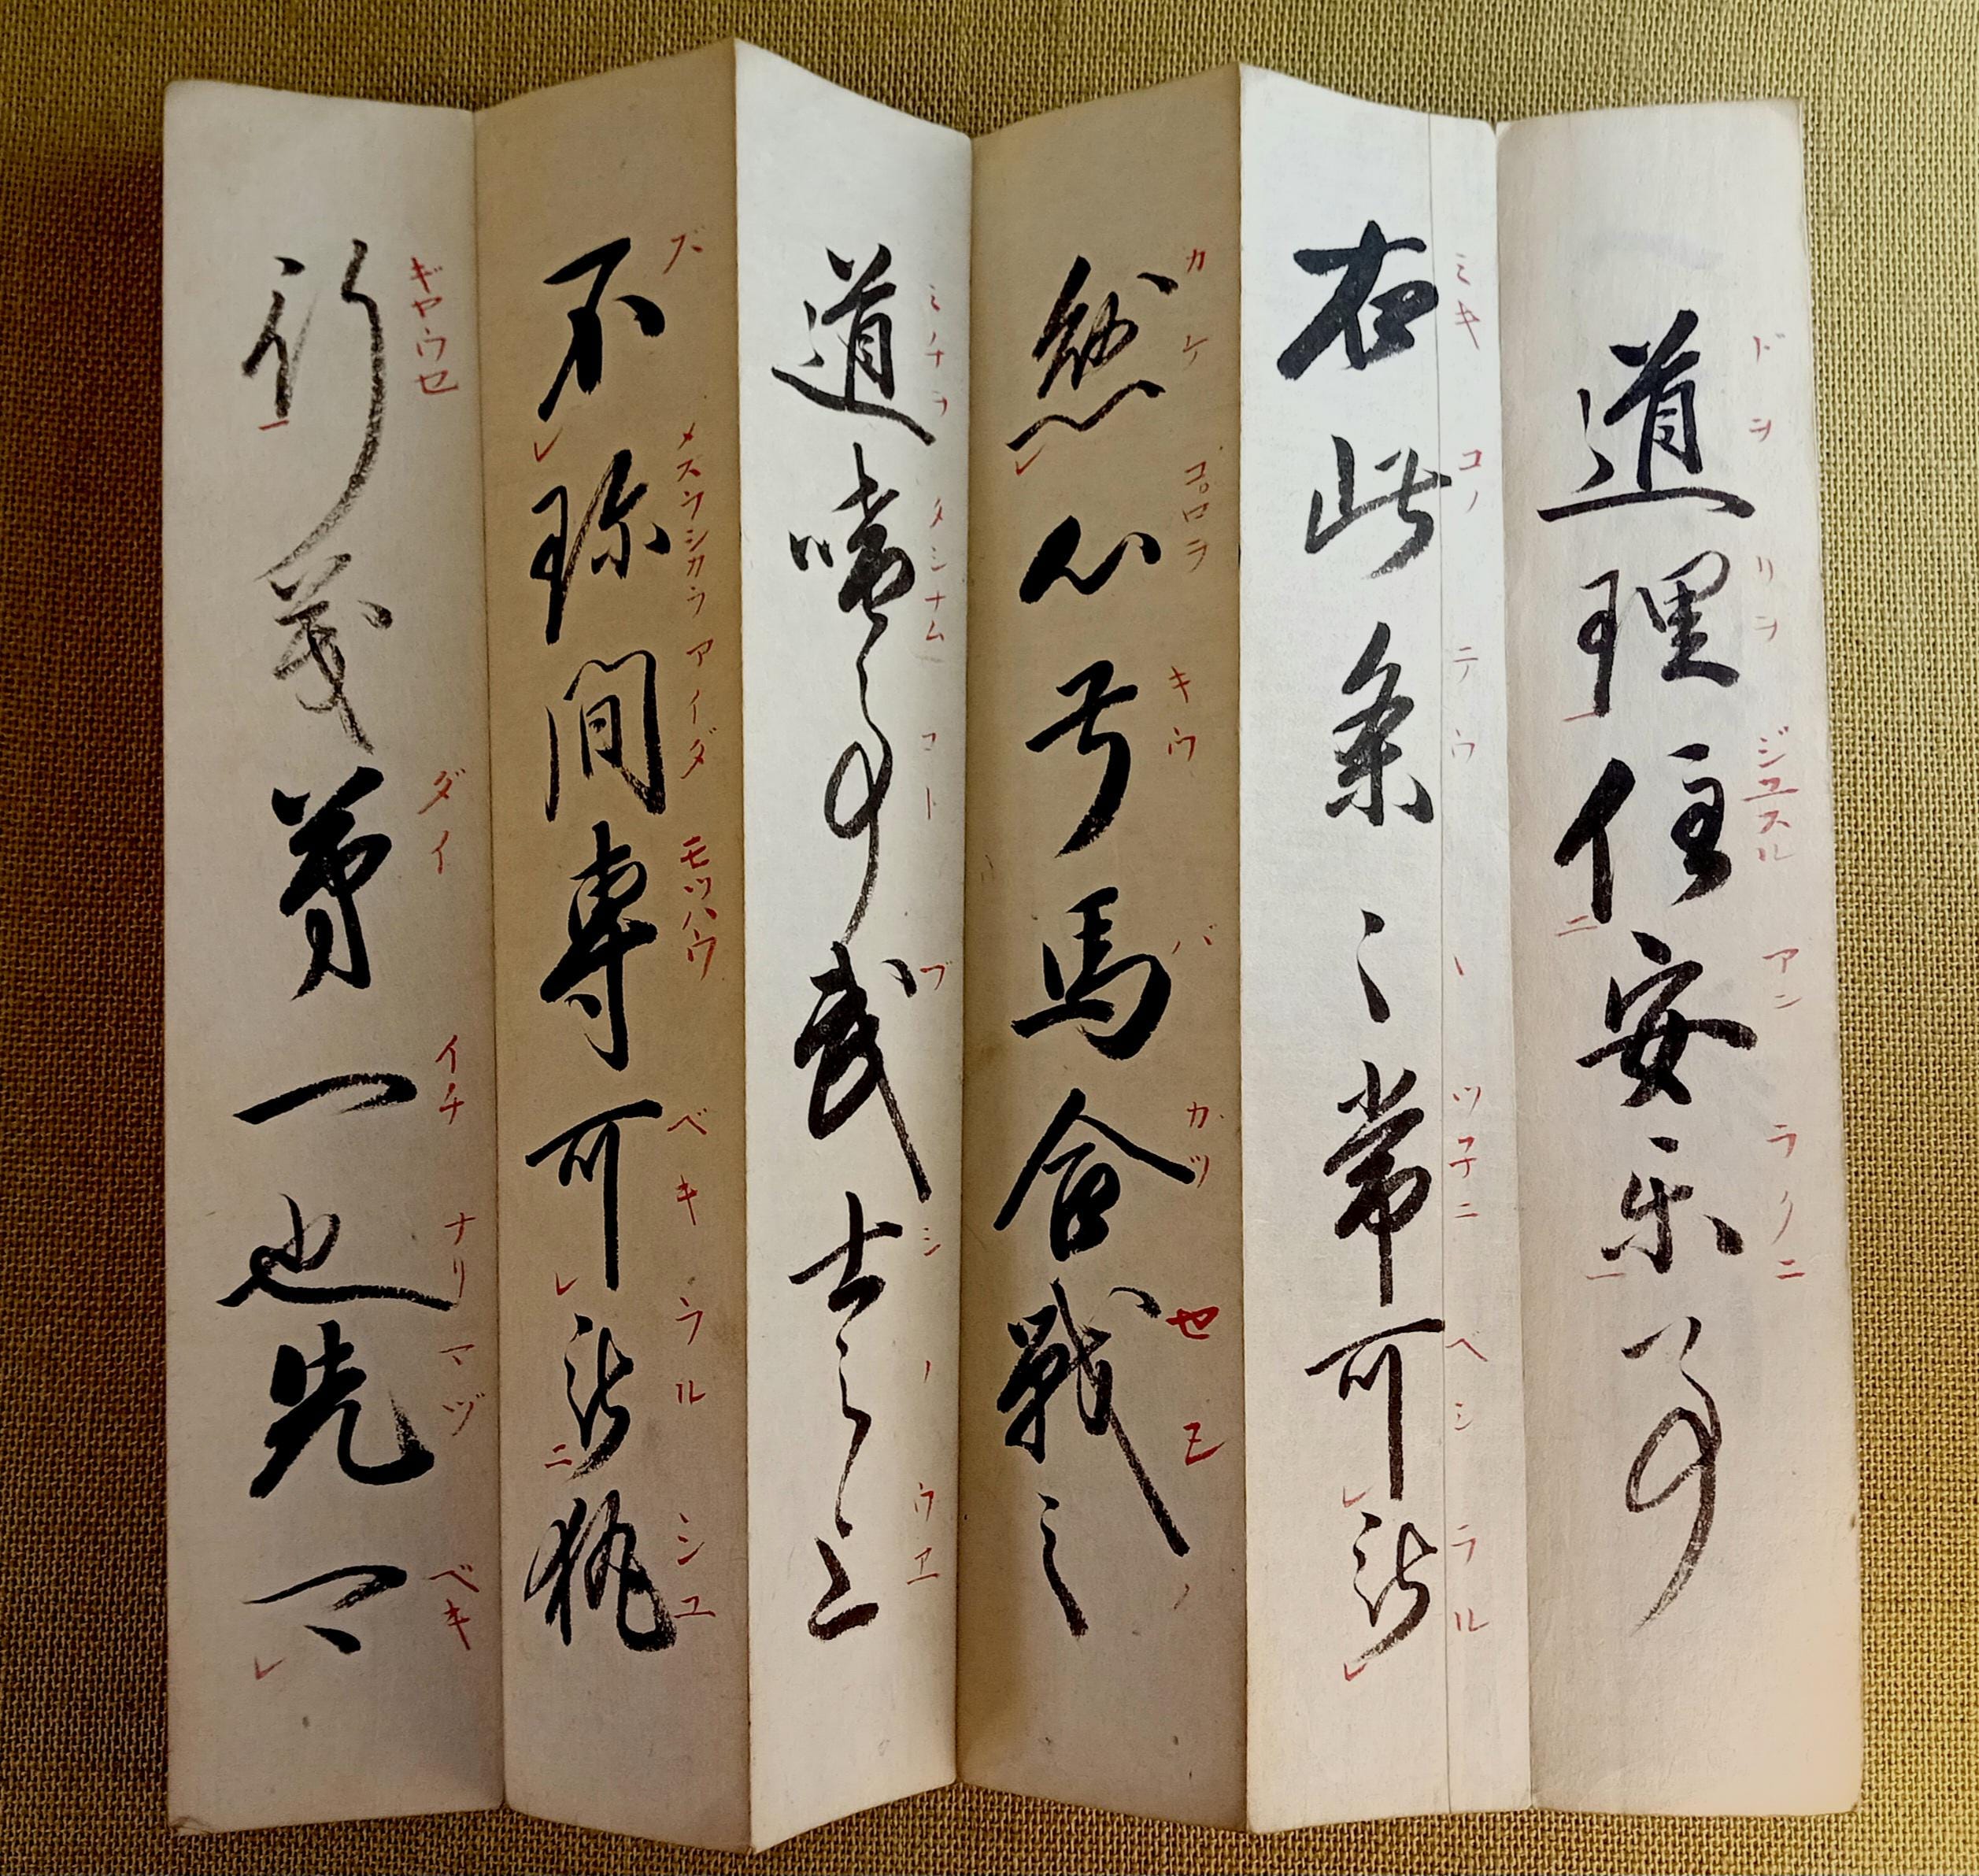 道理住安楽事
ドヲ リヲ ジユスル アン ラクニ
右此条々常可被
ミキ コノ デウ ヽ ツネニ ベシ ラル
懸心弓馬合戦之
カケ コヽロヲ キウ バ カツ セン ノ
道嗜事武士之上
ミチヲ タシナム コト ブ シ ノ ウエ
不珍間専可被執
ズ メズラシカラ アイダ モツハウ ベキ ラル シユ
行義第一也先可
ギヤウセ ダイ イチ ナリ マヅ ベキ